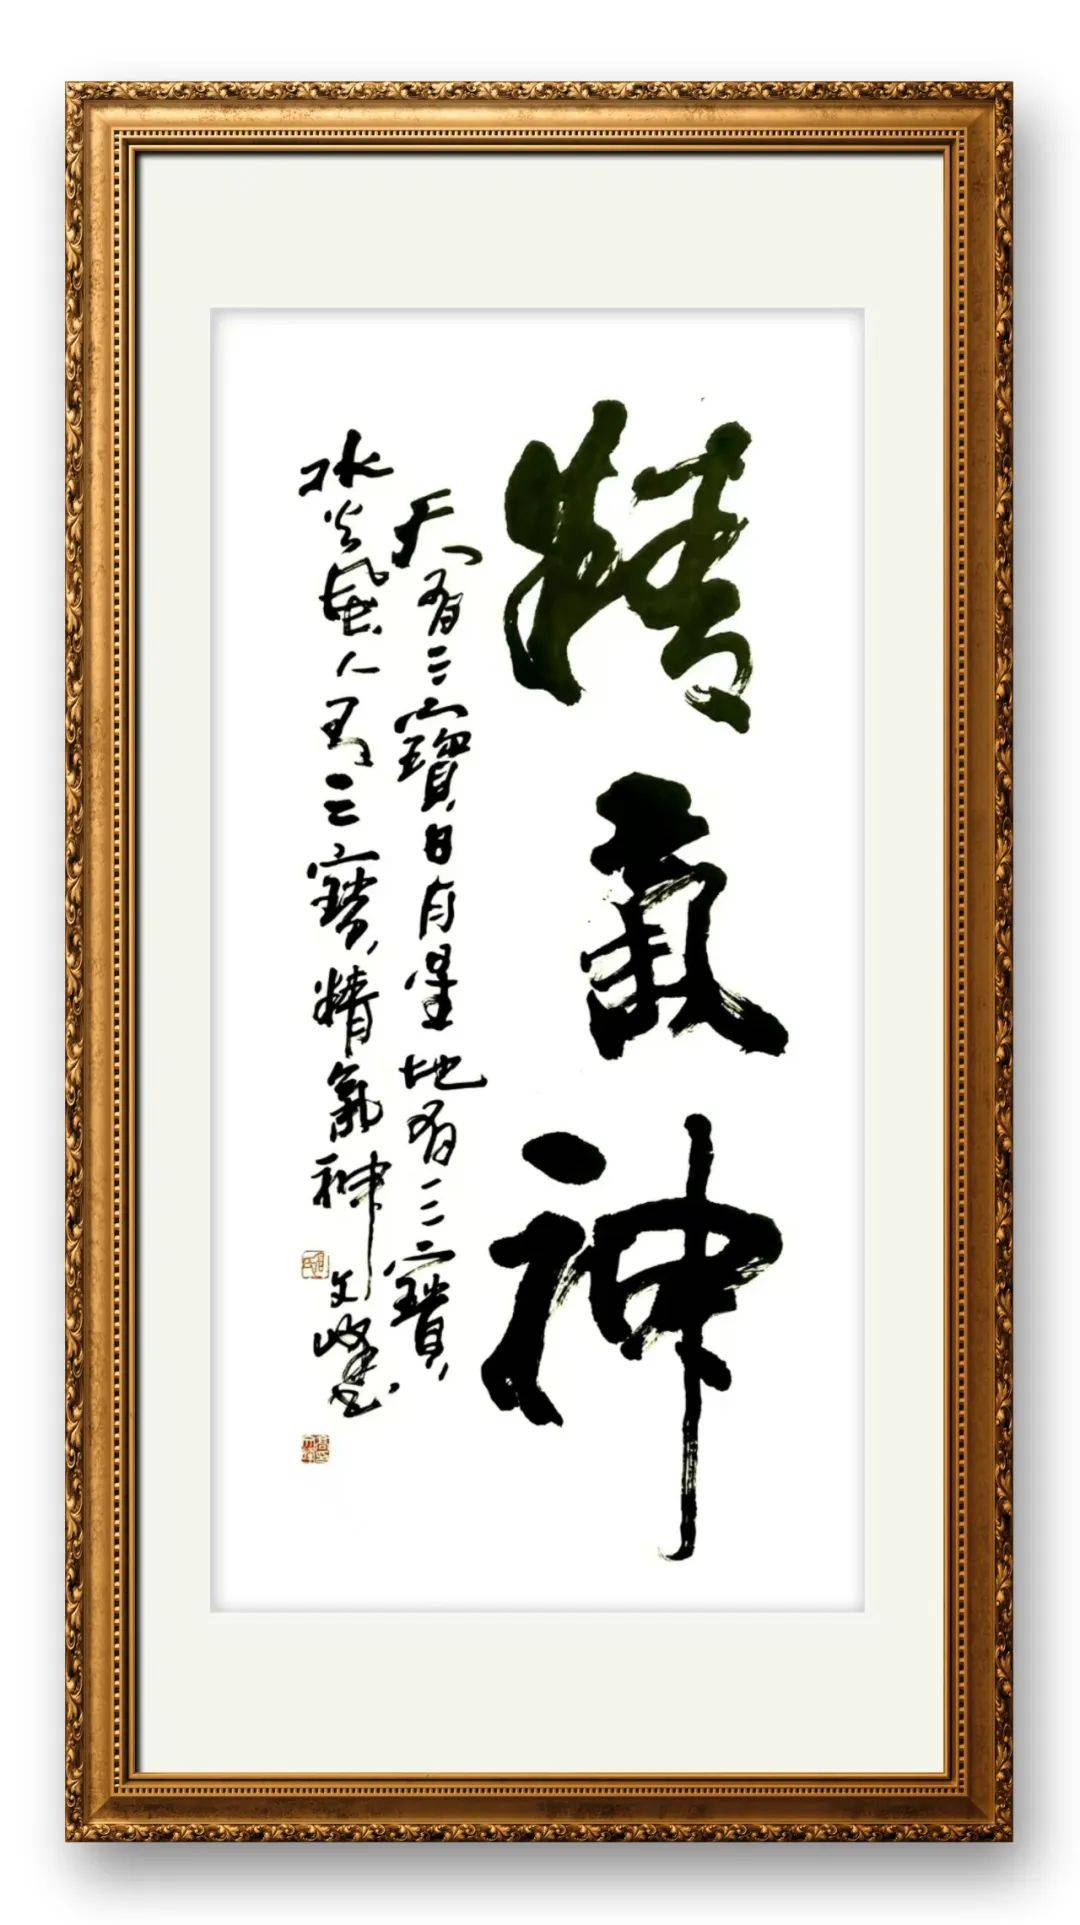 精氣神
天有三寶日月星地有三寶
水火風人有三寶精氣神
文峰書